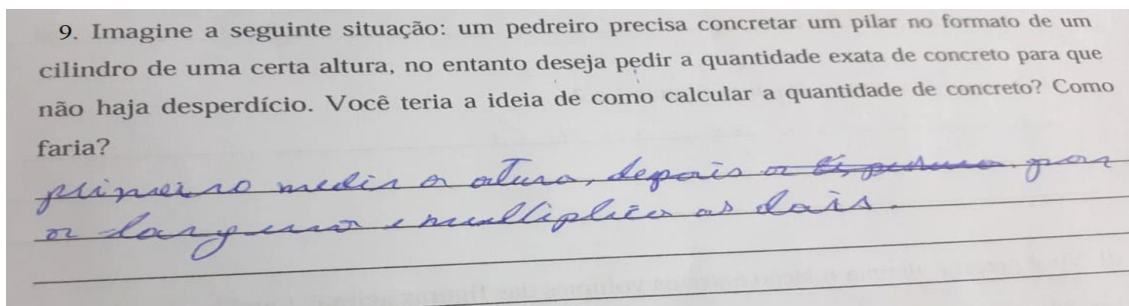 9. Imagine a seguinte situação: um pedreiro precisa concretar um pilar no formato de um
cilindro de uma certa altura, no entanto deseja pedir a quantidade exata de concreto para que
não haja desperdício. Você teria a ideia de como calcular a quantidade de concreto? Como
faria?
primeiro medir a altura, depois a
a largura e multiplica os dois.